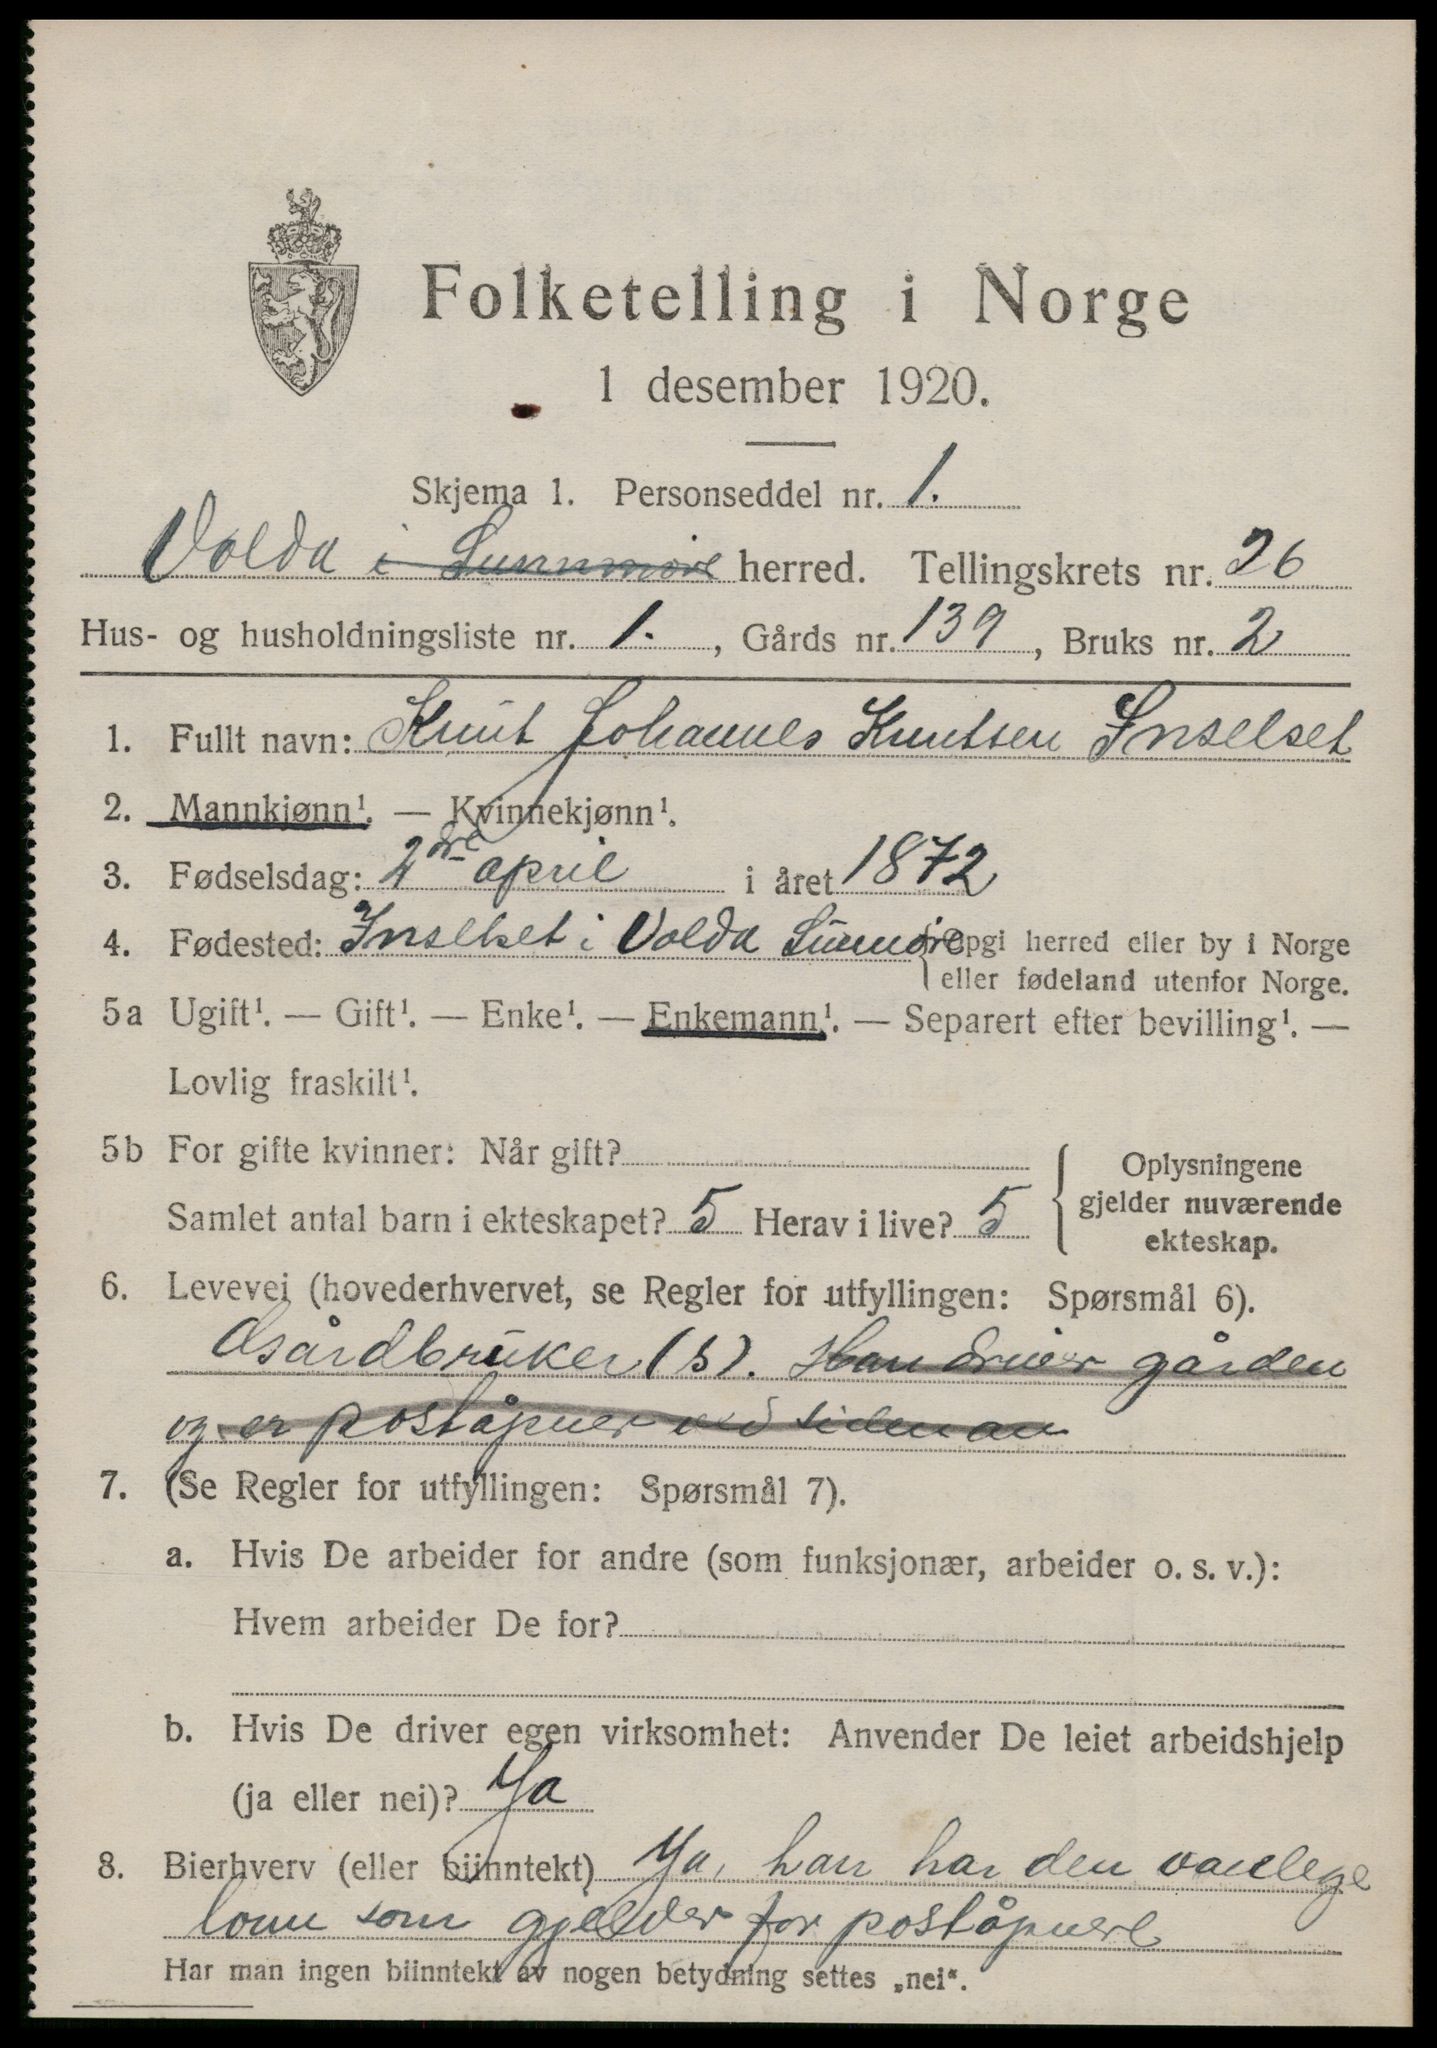 Folketelling i Norge
1 desember 1920.
Skjema 1. Personseddel nr. 1.
Volda i Sunnmøre herred. Tellingskrets nr. 26
Hus- og husholdningsliste nr. 1. , Gårds nr. 139 , Bruks nr. 2
1. Fullt navn: Knut Johannes Knutsen Inselset
2. Mannkjønn¹. — Kvinnekjønn¹.
3. Fødselsdag: 2dre april i året 1872
4. Fødested: Inselset i Volda Sunmøre {Opgi herred eller by i Norge
eller fødeland utenfor Norge.
5a Ugift¹. — Gift¹. — Enke¹. — Enkemann¹. — Separert efter bevilling¹. —
Lovlig fraskilt¹.
5b For gifte kvinner: Når gift?
Samlet antal barn i ekteskapet? 5 Herav i live? 5
Oplysningene
gjelder nuværende
ekteskap.
6. Levevei (hovederhvervet, se Regler for utfyllingen: Spørsmål 6).
Gårdbruker (s). Han driver gården
og er poståpner ved siden av
7. (Se Regler for utfyllingen: Spørsmål 7).
a. Hvis De arbeider for andre (som funksjonær, arbeider o. s. v.):
Hvem arbeider De for?
b. Hvis De driver egen virksomhet: Anvender De leiet arbeidshjelp
(ja eller nei)? Ja
8. Bierhverv (eller biinntekt) Ja, han har den vanlege
lønn som gjelder for poståpnere
Har man ingen biinntekt av nogen betydning settes „nei".